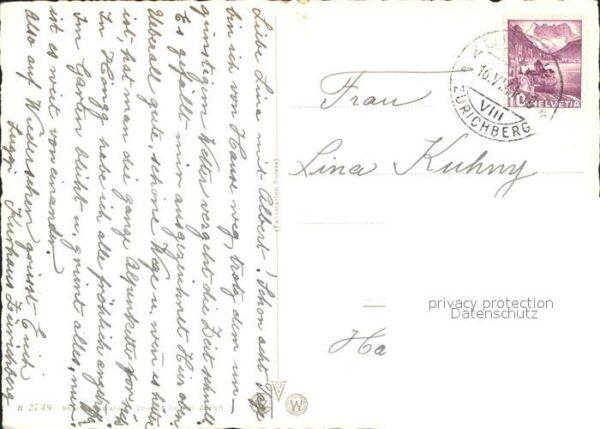 Liebe Lina mit Albert! Schon acht Tage
bin ich von Hause weg, trotz dem un-
günstigem Wetter vergeht die Zeit schnell
Es gefällt mir ausgezeichnet hier oben
Ueberall gute, schöne Wege u. wenn es heiter
ist, hat m die ganze Alpenkette vor
In Höngg habe ich alle fröhlich
Im Garten blüht u. grünt alles, nur
ist es weit voneinander.
Also auf Wiedersehen grüsst Euch
Kurhaus Zürichberg
Frau
Lina Kuhny
Ha
privacy protection
Datenschutz
16.V
VIII
ZÜRICHBERG
10 HELVETIA
R 2749
W